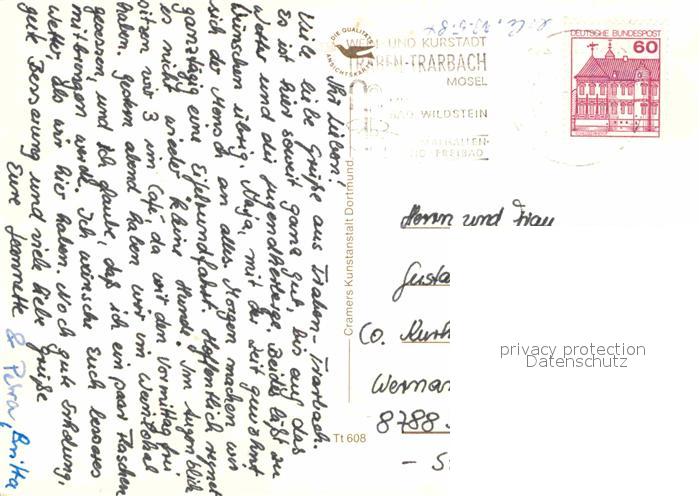 Ihr Lieben!
Viele liebe Grüße aus Traben-Trarbach.
Es ist hier soweit ganz gut, bis auf das
Wetter und die Jugendherberge. Beides läßt zu
Wünschen übrig. Naja, mit der Zeit gewöhnt
sich der Mensch an alles. Morgen machen wir
ganztägig eine Eifelrundfahrt. Hoffentlich regnet
es nicht wieder kleine Hunde. Im Augenblick
sitzen wir 3 im Café, da wir den Vormittag frei
haben. Gestern abend haben wir im Weinlokal
gesessen, und ich glaube, daß ich ein paar Flaschen
mitbringen werde. Ich wünsche Euch besseres
Wetter, als wir hier haben. Noch gute Erholung,
gute Besserung und viele liebe Grüße
Eure Jeannette & Petra, Britta
DIE QUALITÄTS
ANSICHTSKARTE
Cramers Kunstanstalt Dortmund
Tt 608
WEIN- UND KURSTADT
TRABEN-TRARBACH
MOSEL
BAD WILDSTEIN
FREIBAD
DEUTSCHE BUNDESPOST
60
Herrn und Frau
Gusta
Co. Kurh
Wernar
8788
privacy protection
Datenschutz